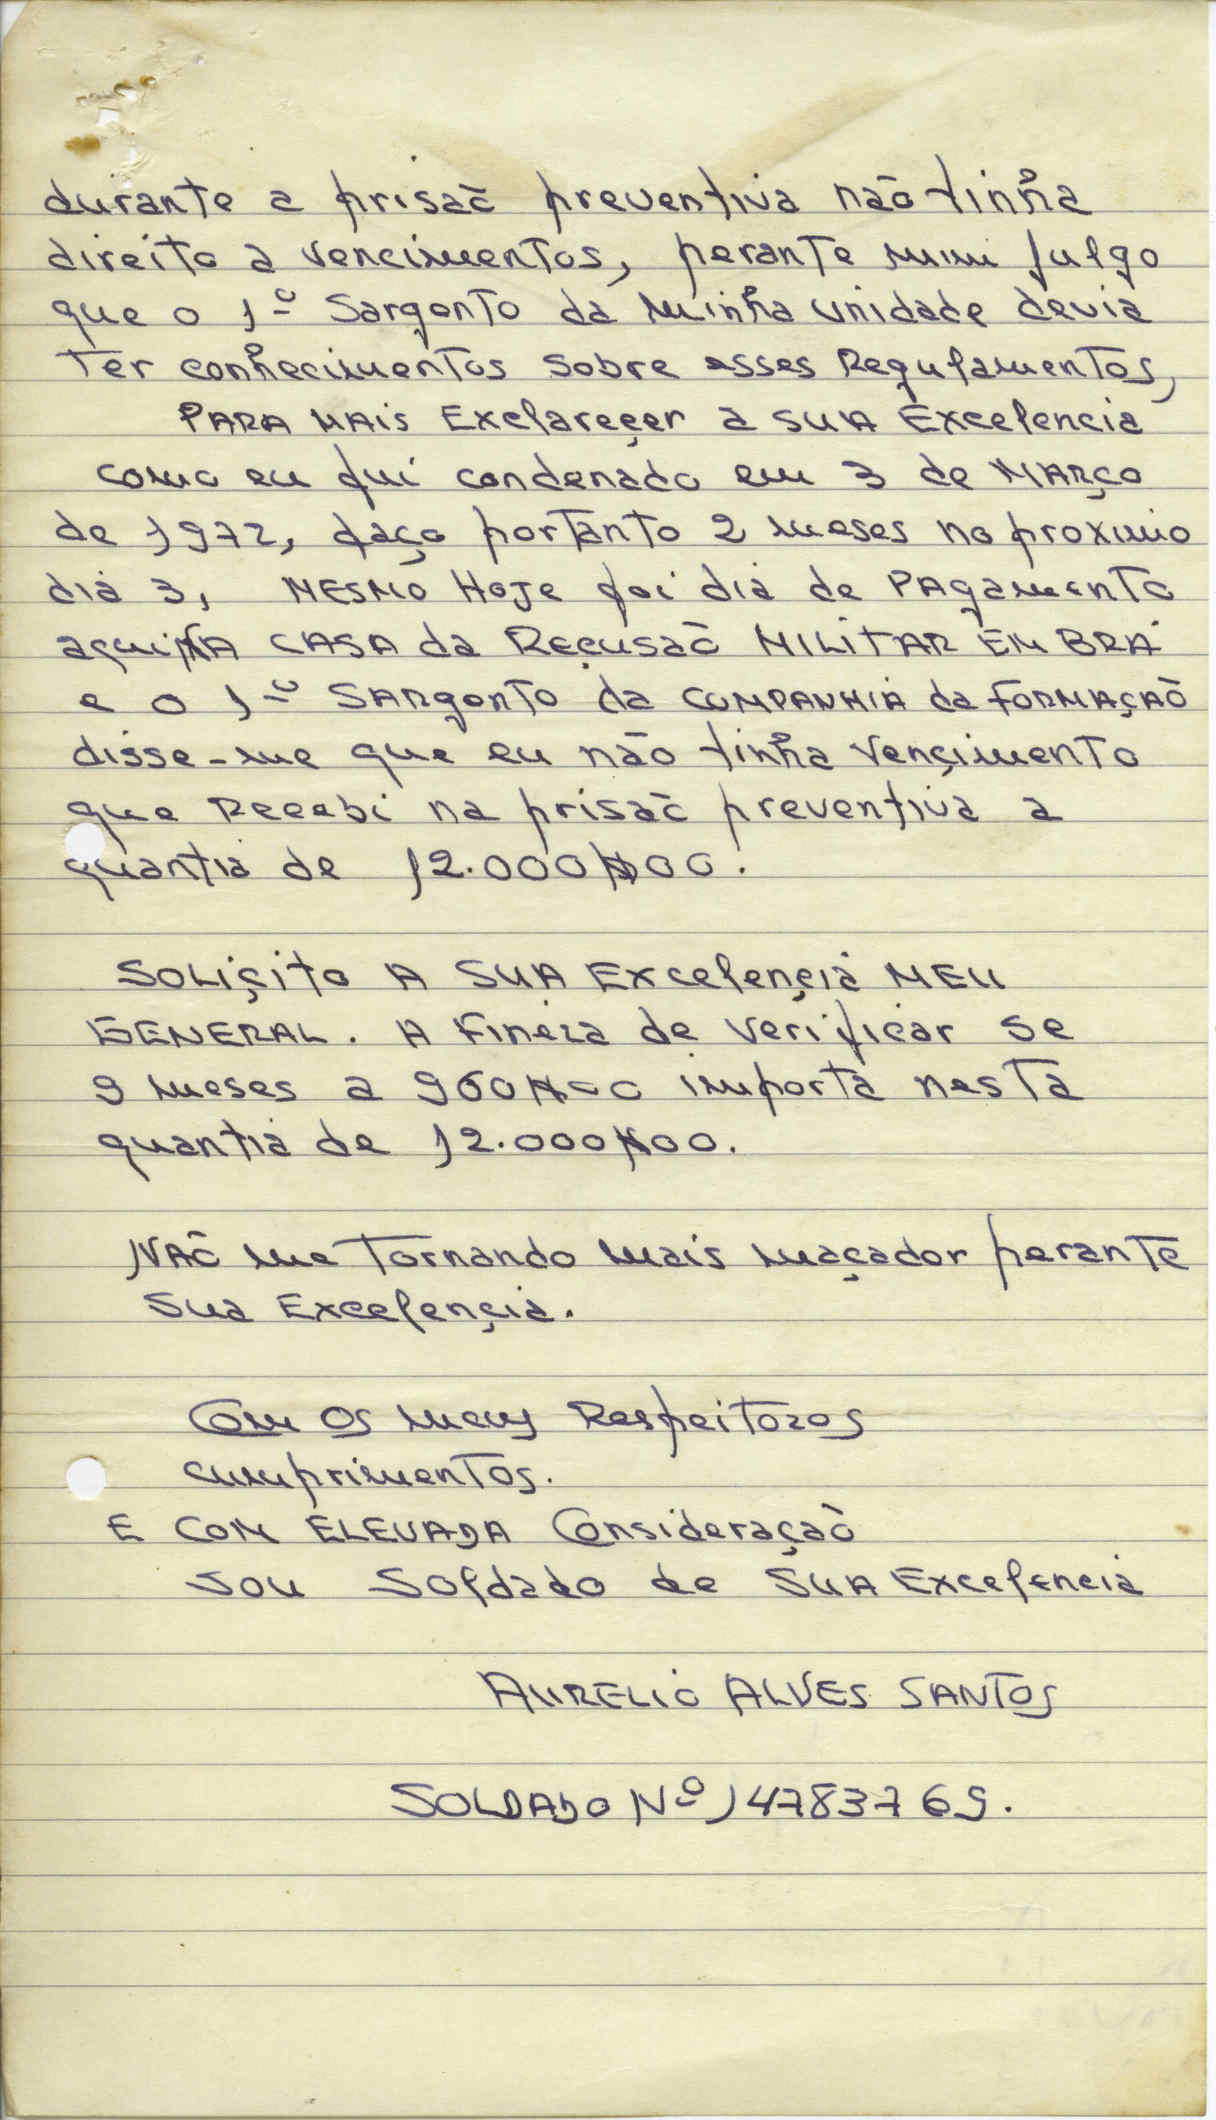 durante a prisaõ preventiva não tinha
direito a vencimentos, perante mim julgo
que o 1º Sargonto da minha unidade devia
Ter conhecimentos sobre esses Regulamentos,
PARA MAIS Exclareçer a SUA Excelencia
como eu fui condenado em 3 de MARÇO
de 1972, faço portanto 2 meses no proximo
dia 3, MESMO Hoje foi dia de PAgamento
aqui NA CASA da Reçusaõ MILITAR EM BRÁ
e o 1º SARgonto da COMPANHIA da FORMAÇAÕ
disse-me que eu não tinha Vençimento
que Recebi na prisaõ preventiva a
quantia de 12.000$00.
SOLIÇito A SUA Excelençia MEU
GENERAL. A Fineza de verificar se
9 meses a 960$00 importa nesta
quantia de 12.000$00.
NAÕ me Tornando mais maçador perante
Sua Excelençia.
Com Os meus Respeitozos
cumprimentos.
E COM ELEVADA Consideraçaõ
Sou Soldado de SUA Excelencia
AURELIO ALVES SANTOS
SOLDADO Nº 14783769.